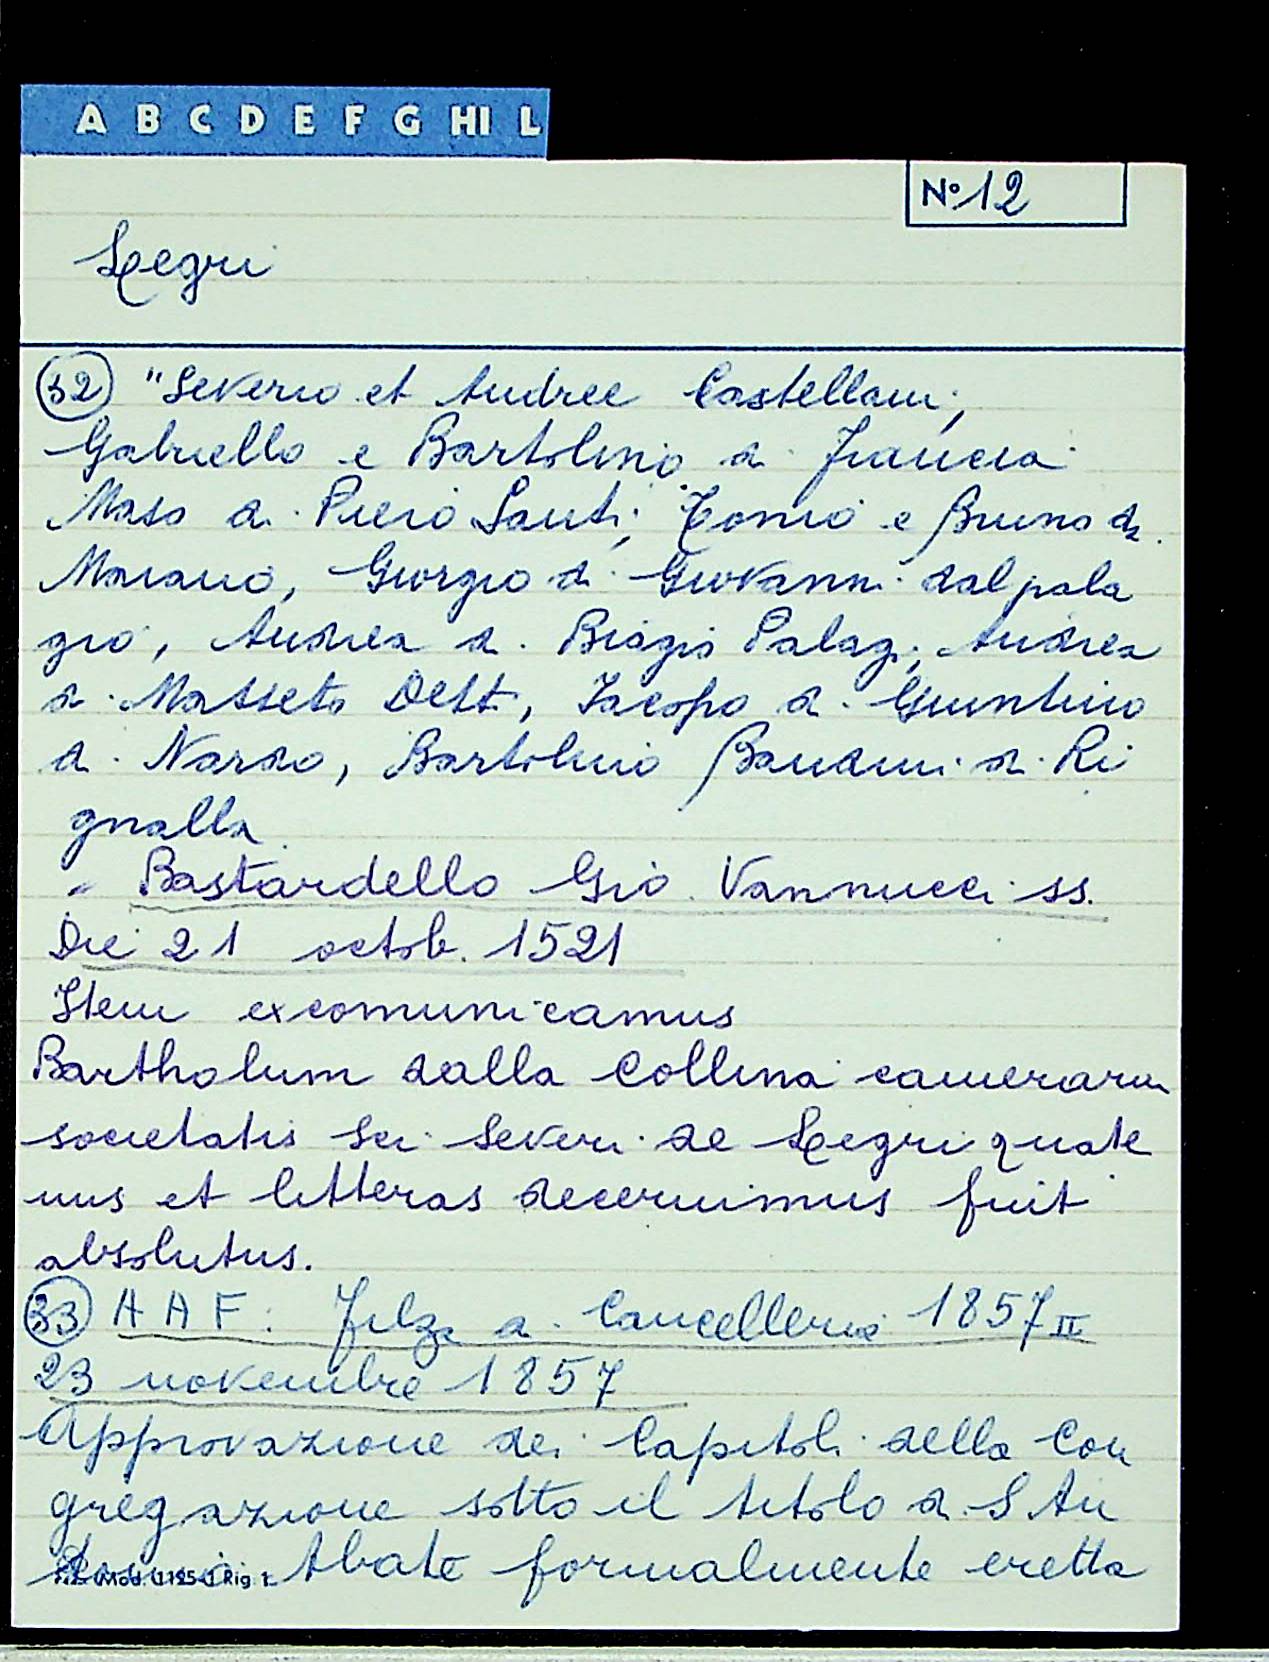 A B C D E F G HI L
N° 12
Legri
32 "Severio et Andree Castellani,
Gabriello e Bartolino di Francia
Maso di Piero Santi; Tonio e Bruno di
Mariano, Giorgio di Giovanni dal pala
gio, Andrea di Biagio Palagi, Andrea
di Masseto Detti, Iacopo di Giuntino
di Nardo, Bartolino Bandini di Ri
gnalla
" Bastardello Gio Vannucci ss.
Die 21 octob. 1521
Item excomunicamus
Bartholum dalla Collina camerarium
societatis Sci Severi de Legri quate
nus et litteras decernimus fuit
absolutus.
33 A A F: Filza di Cancelleria 1857 II
23 novembre 1857
Approvazione dei Capitoli della Con
gregazione sotto il titolo di S An
Abate formalmente eretta
Mod. Rig. 1